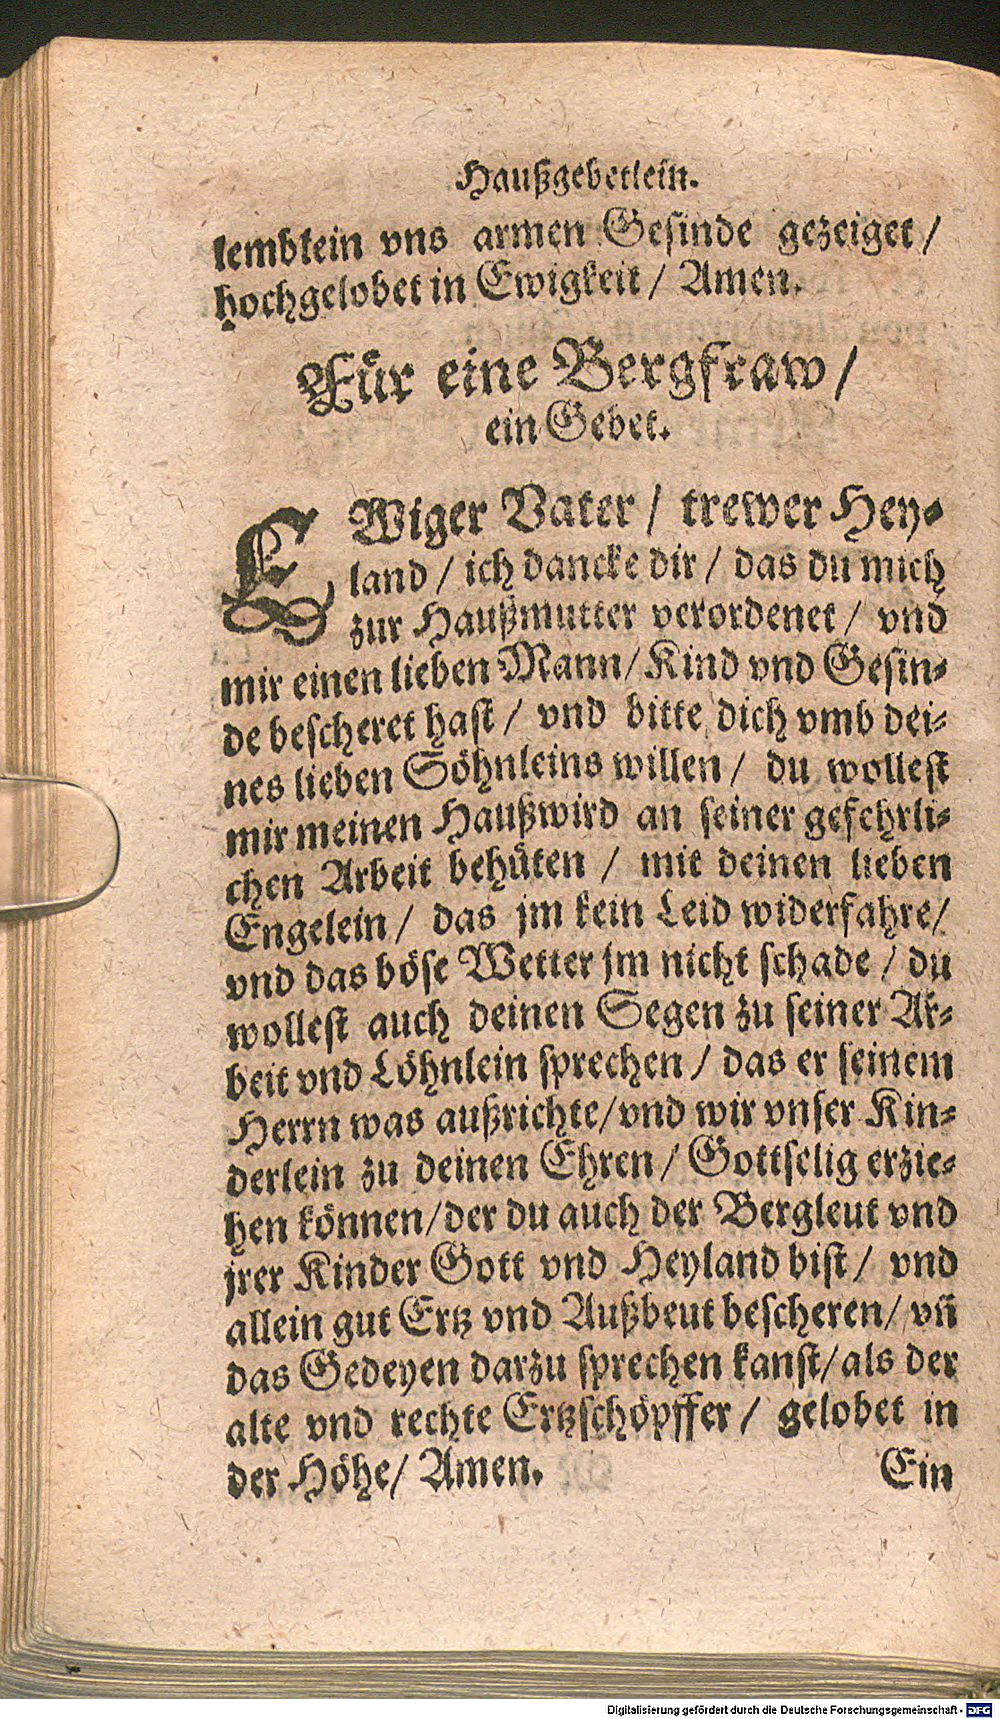 Haußgebetlein.
lemblein vns armen Gesinde gezeiget /
hochgelobet in Ewigkeit / Amen.
Für eine Bergfraw /
ein Gebet.
EWiger Vater / trewer Hey-
land / ich dancke dir / das du mich
zur Haußmutter verordenet / vnd
mir einen lieben Mann / Kind vnd Gesin-
de bescheret hast / vnd bitte dich vmb dei-
nes lieben Söhnleins willen / du wollest
mir meinen Haußwird an seiner gefehrli-
chen Arbeit behüten / mit deinen lieben
Engelein / das jm kein Leid widerfahre /
vnd das böse Wetter jm nicht schade / du
wollest auch deinen Segen zu seiner Ar-
beit vnd Löhnlein sprechen / das er seinem
Herrn was außrichte / vnd wir vnser Kin-
derlein zu deinen Ehren / Gottselig erzie-
hen können / der du auch der Bergleut vnd
jrer Kinder Gott vnd Heyland bist / vnd
allein gut Ertz vnd Außbeut bescheren / vñ
das Gedeyen darzu sprechen kanst / als der
alte vnd rechte Ertzschöpffer / gelobet in
der Höhe / Amen.
Ein
Digitalisierung gefördert durch die Deutsche Forschungsgemeinschaft - DFG